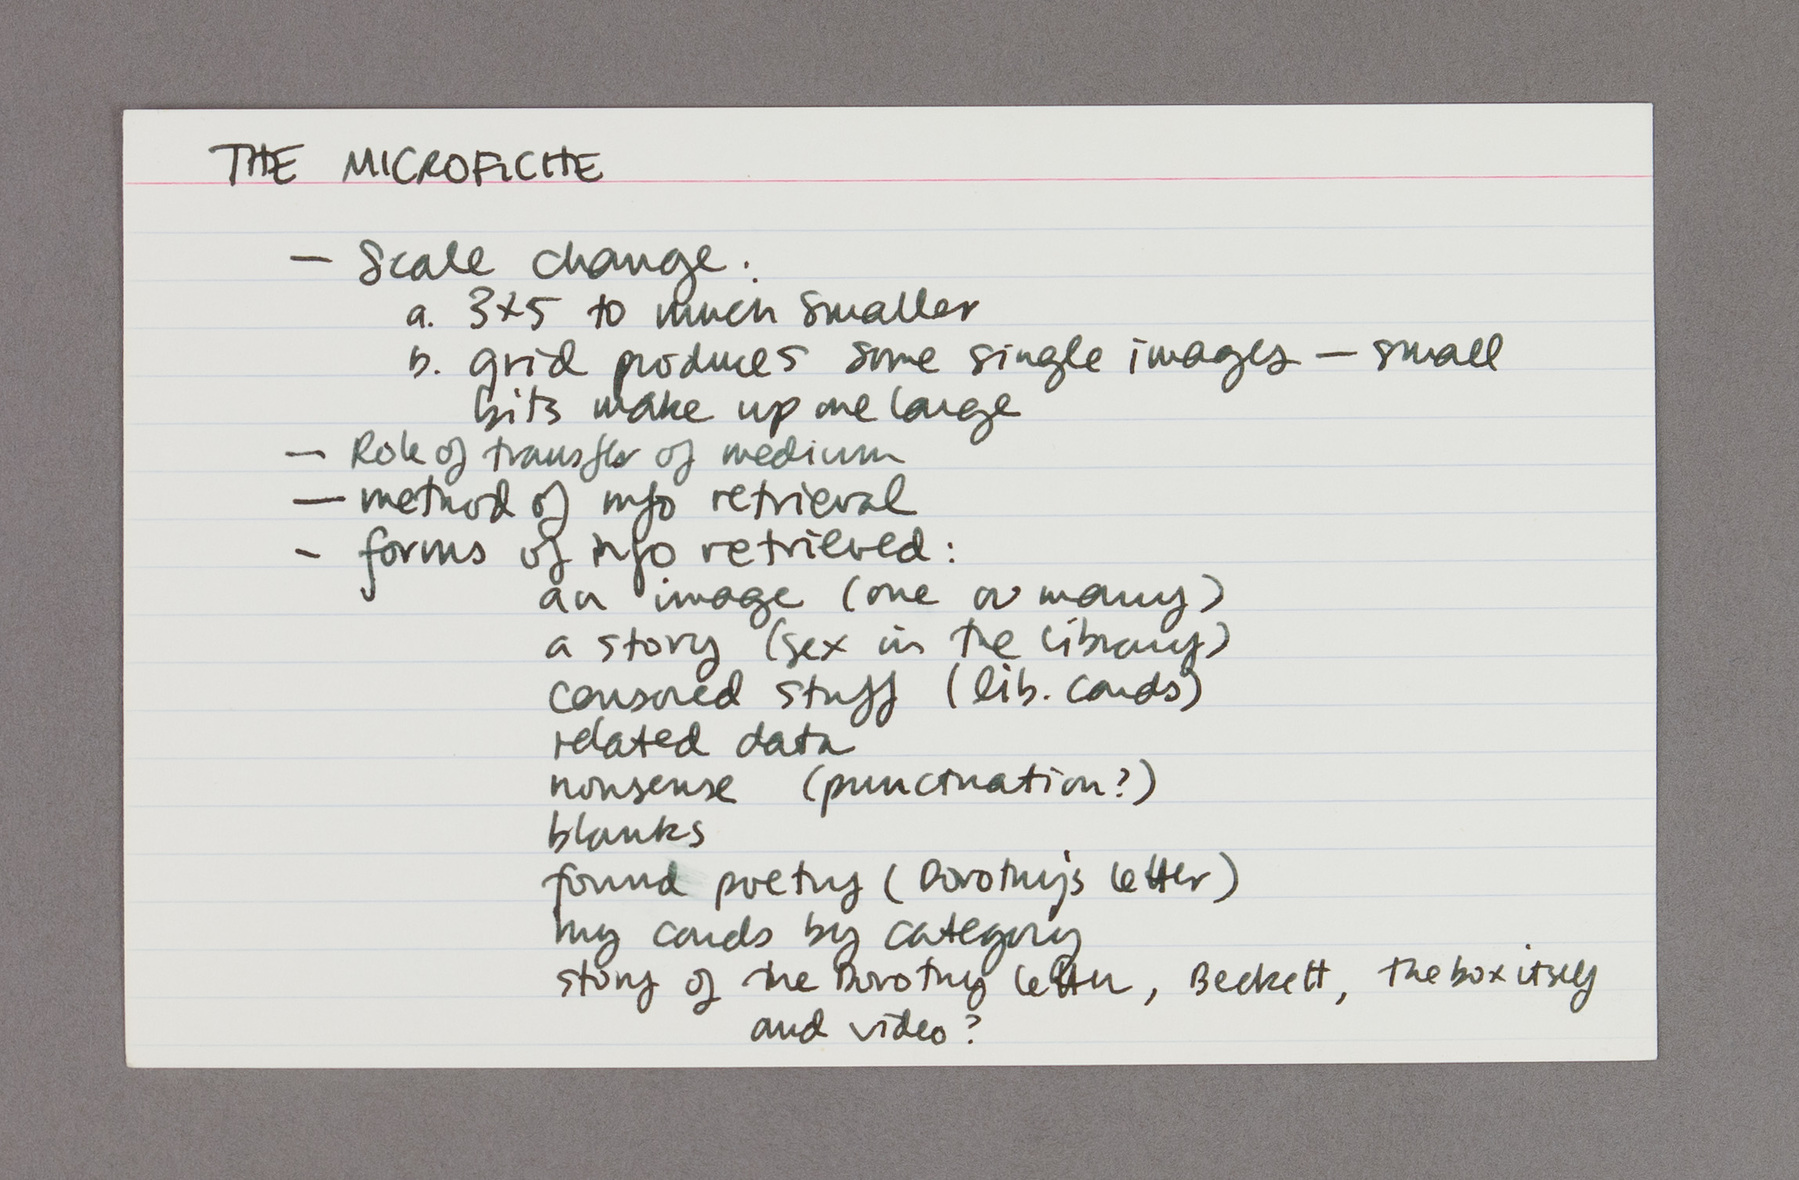 THE MICROFICHE
— Scale change:
a. 3x5 to much smaller
b. grid produces some single images — small
bits make up one large
— Role of transfer of medium
— method of info retrieval
- forms of info retrieved:
an image (one or many)
a story (sex in the library)
censored stuff (lib. cards)
related data
nonsense (punctuation?)
blanks
found poetry (Dorothy's letter)
my cards by category
story of the Dorothy letter, Beckett, the box itself
and video?